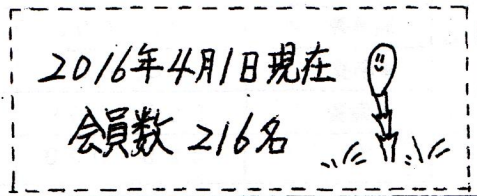 2016年4月1日現在
会員数 216名